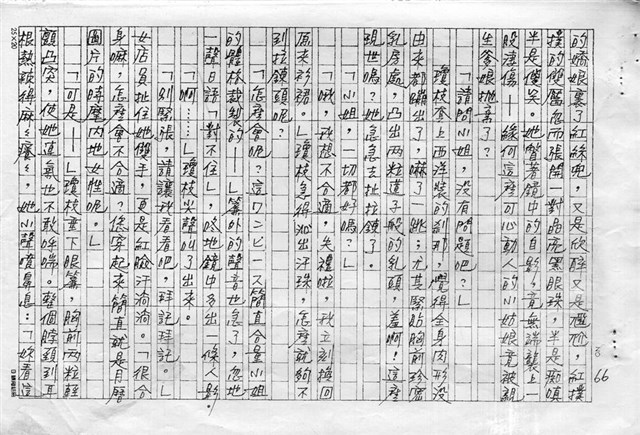 66
的嬌娘裹了紅綠兜,又是欣醉又是尷尬,紅撲
撲的雙腮忽而張開一對晶亮黑眼珠,半是癡嗔
半是傻笑。她瞥著鏡中的自影,竟無端襲上一
股淒傷——緣何這麼可心動人的小姑娘竟被親
生爹娘拋棄了?
「請問小姐,沒有問題吧?」
瓊枝套上西洋裝的剎那,覺得全身肉形沒
由來都蹦出了,嚇了一跳;尤其緊貼胸前珍罕
乳房處,凸出兩粒蓮子般的乳頭,羞啊!這麼
現世嗎?她急急去扯拉鍊了。
「小姐,一切都好嗎?」
「哦,我想不合適,失禮啦,我立刻換回
原來衫裙。」瓊枝急得沁出汗珠,怎麼就夠不
到拉鍊頭呢?
「怎麼會呢?這ワンピース簡直合量小姐
的體格裁製的——」簾外的聲音也急了,忽地
一聲日語「對不住」,咚地鏡中多出一條人影。
「啊……」瓊枝尖聲叫了出來。
「別緊張,請讓我看看吧,拜託拜託。」
女店員扯住她雙手,更是紅臉汗淌淌。「很合
身嘛,怎麼會不合適?您穿起來簡直就是月曆
圖片的時髦內地女性呢。」
「可是——」瓊枝垂下眼簾,胸前兩粒蕊
顆凸突,使她連氣也不敢呼喘。整個脖頸到耳
根熱被得麻麻癢癢,她小聲噴鼻息:「妳看這
25×20